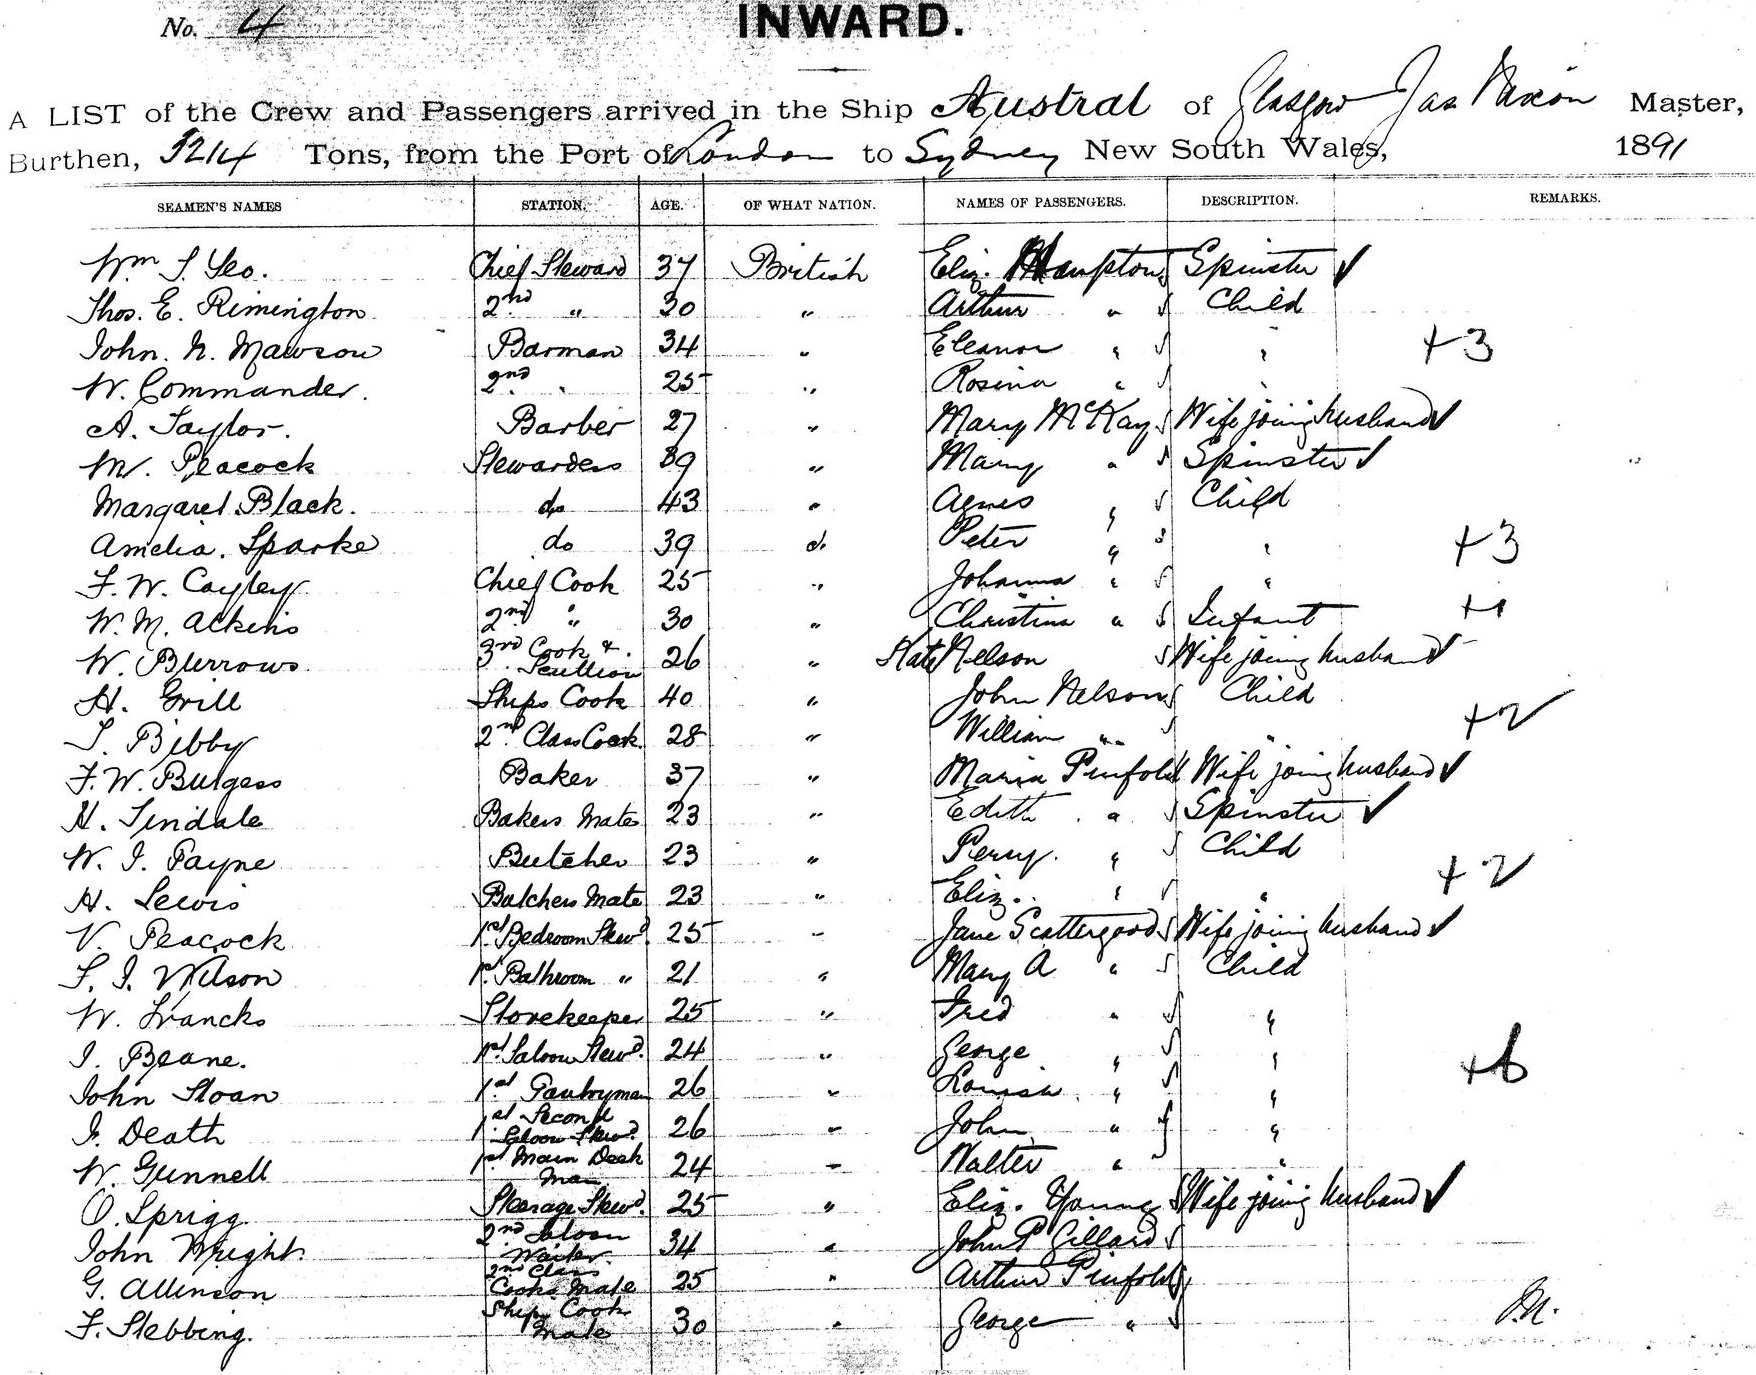 No. 4
INWARD.
A LIST of the Crew and Passengers arrived in the Ship Austral of Glasgow Jas Nixon Master,
Burthen, 3214 Tons, from the Port of London to Sydney New South Wales, 1891
SEAMEN'S NAMES STATION. AGE. OF WHAT NATION. NAMES OF PASSENGERS. DESCRIPTION. REMARKS.
Wm J. Yeo. Chief Steward 37 British Eliz. Hampton Spinster ✓
Thos. E. Rimington 2nd " 30 " Arthur " Child
John. N. Mawson Barman 34 " Eleanor " " +3
W. Commander. 2nd " 25 " Rosina " "
A. Taylor. Barber 27 " Mary McKay Wife joing husband ✓
M. Peacock Stewardess 39 " Mary " Spinster ✓
Margaret Black. do 43 " Agnes " Child
Amelia. Sparke do 39 do Peter " " +3
F. W. Cayley Chief Cook 25 " Johanna " "
W. M. Atkins 2nd " 30 " Christina " Infant +1
W. Burrows. 3rd Cook & Scullion 26 " Kate Nelson Wife joing husband ✓
H. Grill Ships Cook 40 " John Nelson Child
T. Bibby 2nd Class Cook 28 " William " " +2
F. W. Burgess Baker 37 " Maria Pinfold Wife joing husband ✓
H. Tindale Bakers Mate 23 " Edith " Spinster ✓
W. J. Payne Butcher 23 " Percy. " Child
H. Lewis Butchers Mate 23 " Eliz. " " +2
V. Peacock 1st Bedroom Stewd. 25 " Jane Scattergood Wife joing husband ✓
F. J. Wilson 1st Bathroom " 21 " Mary A " Child
W. Francks Storekeeper 25 " Fred " "
J. Beane. 1st Saloon Stewd. 24 " George " " +6
John Sloan 1st Pantryman 26 " Louisa " "
J. Death 1st Second Saloon Stewd. 26 " John " "
W. Gunnell 1st Main Deck Man 24 " Walter " "
O. Sprigg Steerage Stewd. 25 " Eliz. Young Wife joing husband ✓
John Wright. 2nd Saloon Waiter. 34 " John P Gillard
G. Allinson 2nd Class Cooks Mate 25 " Arthur Pinfold
F. Stebbing. Ships Cook Mate 30 " George "